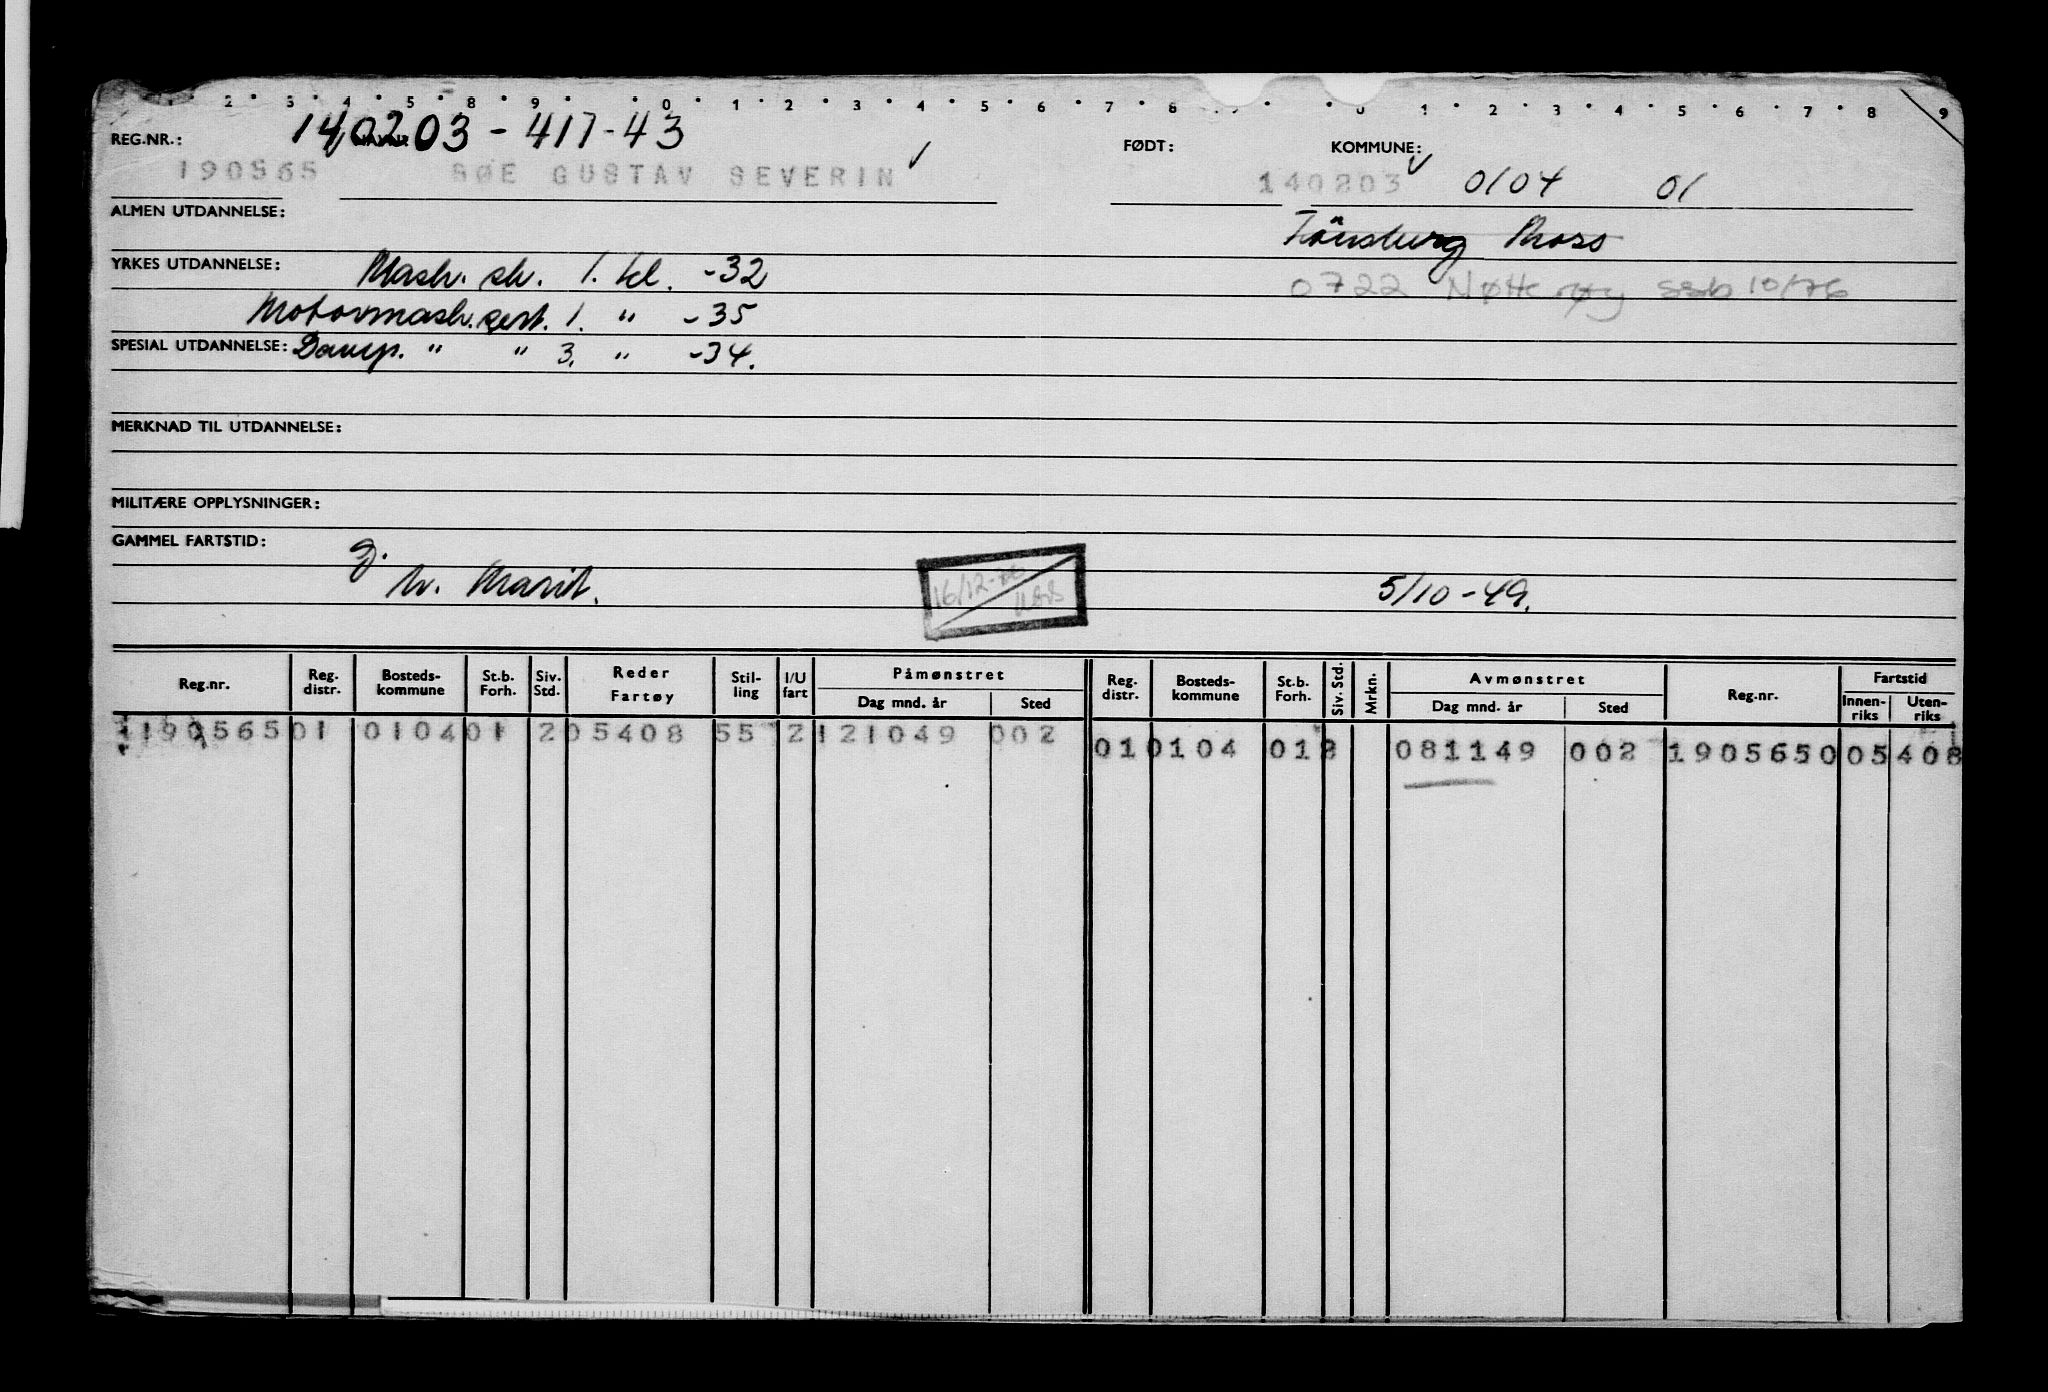 2 3 4 5 8 9 0 1 2 3 4 5 6 7 8 0 1 2 3 4 5 6 7 8 9
REG.NR.: 140203-417-43 FØDT: KOMMUNE:
190565 BØE GUSTAV SEVERIN ✓ 140203 ✓ 0104 01
ALMEN UTDANNELSE: Tönsberg Moss
YRKES UTDANNELSE: Mask. sk. 1. kl. -32
0722 Nøtterøy ssb 10/76
Motormask. sert. 1. " -35
SPESIAL UTDANNELSE: Damp. " " 3. " -34.
MERKNAD TIL UTDANNELSE:
MILITÆRE OPPLYSNINGER:
GAMMEL FARTSTID: g.
M. Marit. 5/10-49.
16/12-76
Reg.nr. Reg. distr. Bosteds-kommune St.b. Forh. Siv. Std. Reder Fartøy Stil-ling I/U fart Påmønstret Dag mnd. år Sted Reg. distr. Bosteds-kommune St.b. Forh. Siv. Std. Mrkn. Avmønstret Dag mnd. år Sted Reg.nr. Fartstid Innen-riks Uten-riks
190565 01 0104 01 2 05408 55 2 121049 002
01 0104 01 2 081149 002 1905650 05 408